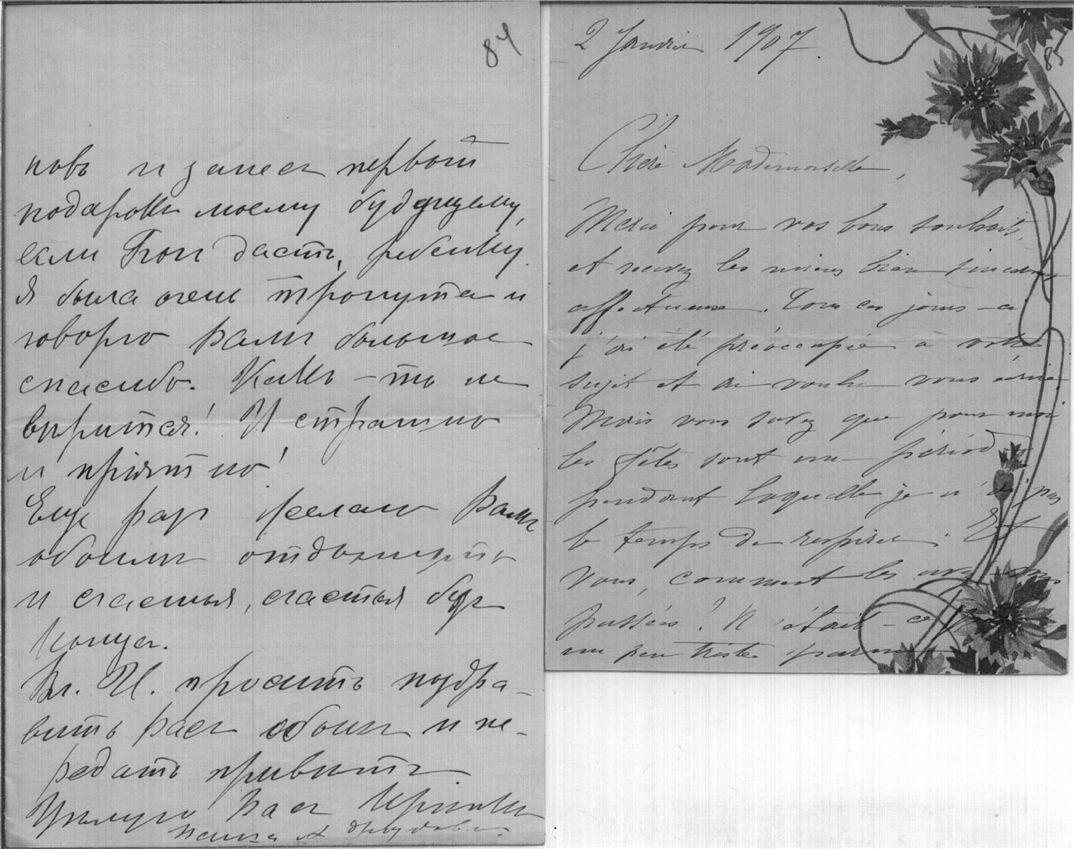 84
новъ и занесъ первый
подарокъ моему будущему,
если Богъ дастъ, ребенку.
Я была очень тронута и
говорю Вамъ большое
спасибо. Какъ-то не
вѣрится! И страшно
и пріятно!
Еще разъ желаю Вамъ
обоимъ отдохнуть
и счастья, счастья безъ
конца.
Вл. И. проситъ поздра-
вить Васъ обоихъ и пе-
редать привѣтъ
Цѣлую Васъ крѣпко
Ваша А.
85
2 Janvier 1907.
Chère Mademoiselle,
Merci pour vos bons souhaits,
et recevez les miens bien sincères
affectueux. Tous ces jours-ci
j'ai été préoccupée à votre
sujet et ai voulu vous écrire.
Mais vous savez que pour moi
les fêtes sont une période
pendant laquelle je n'ai pas
le temps de respirer. Et
vous, comment les avez-vous
passées? N'était-ce
un peu triste